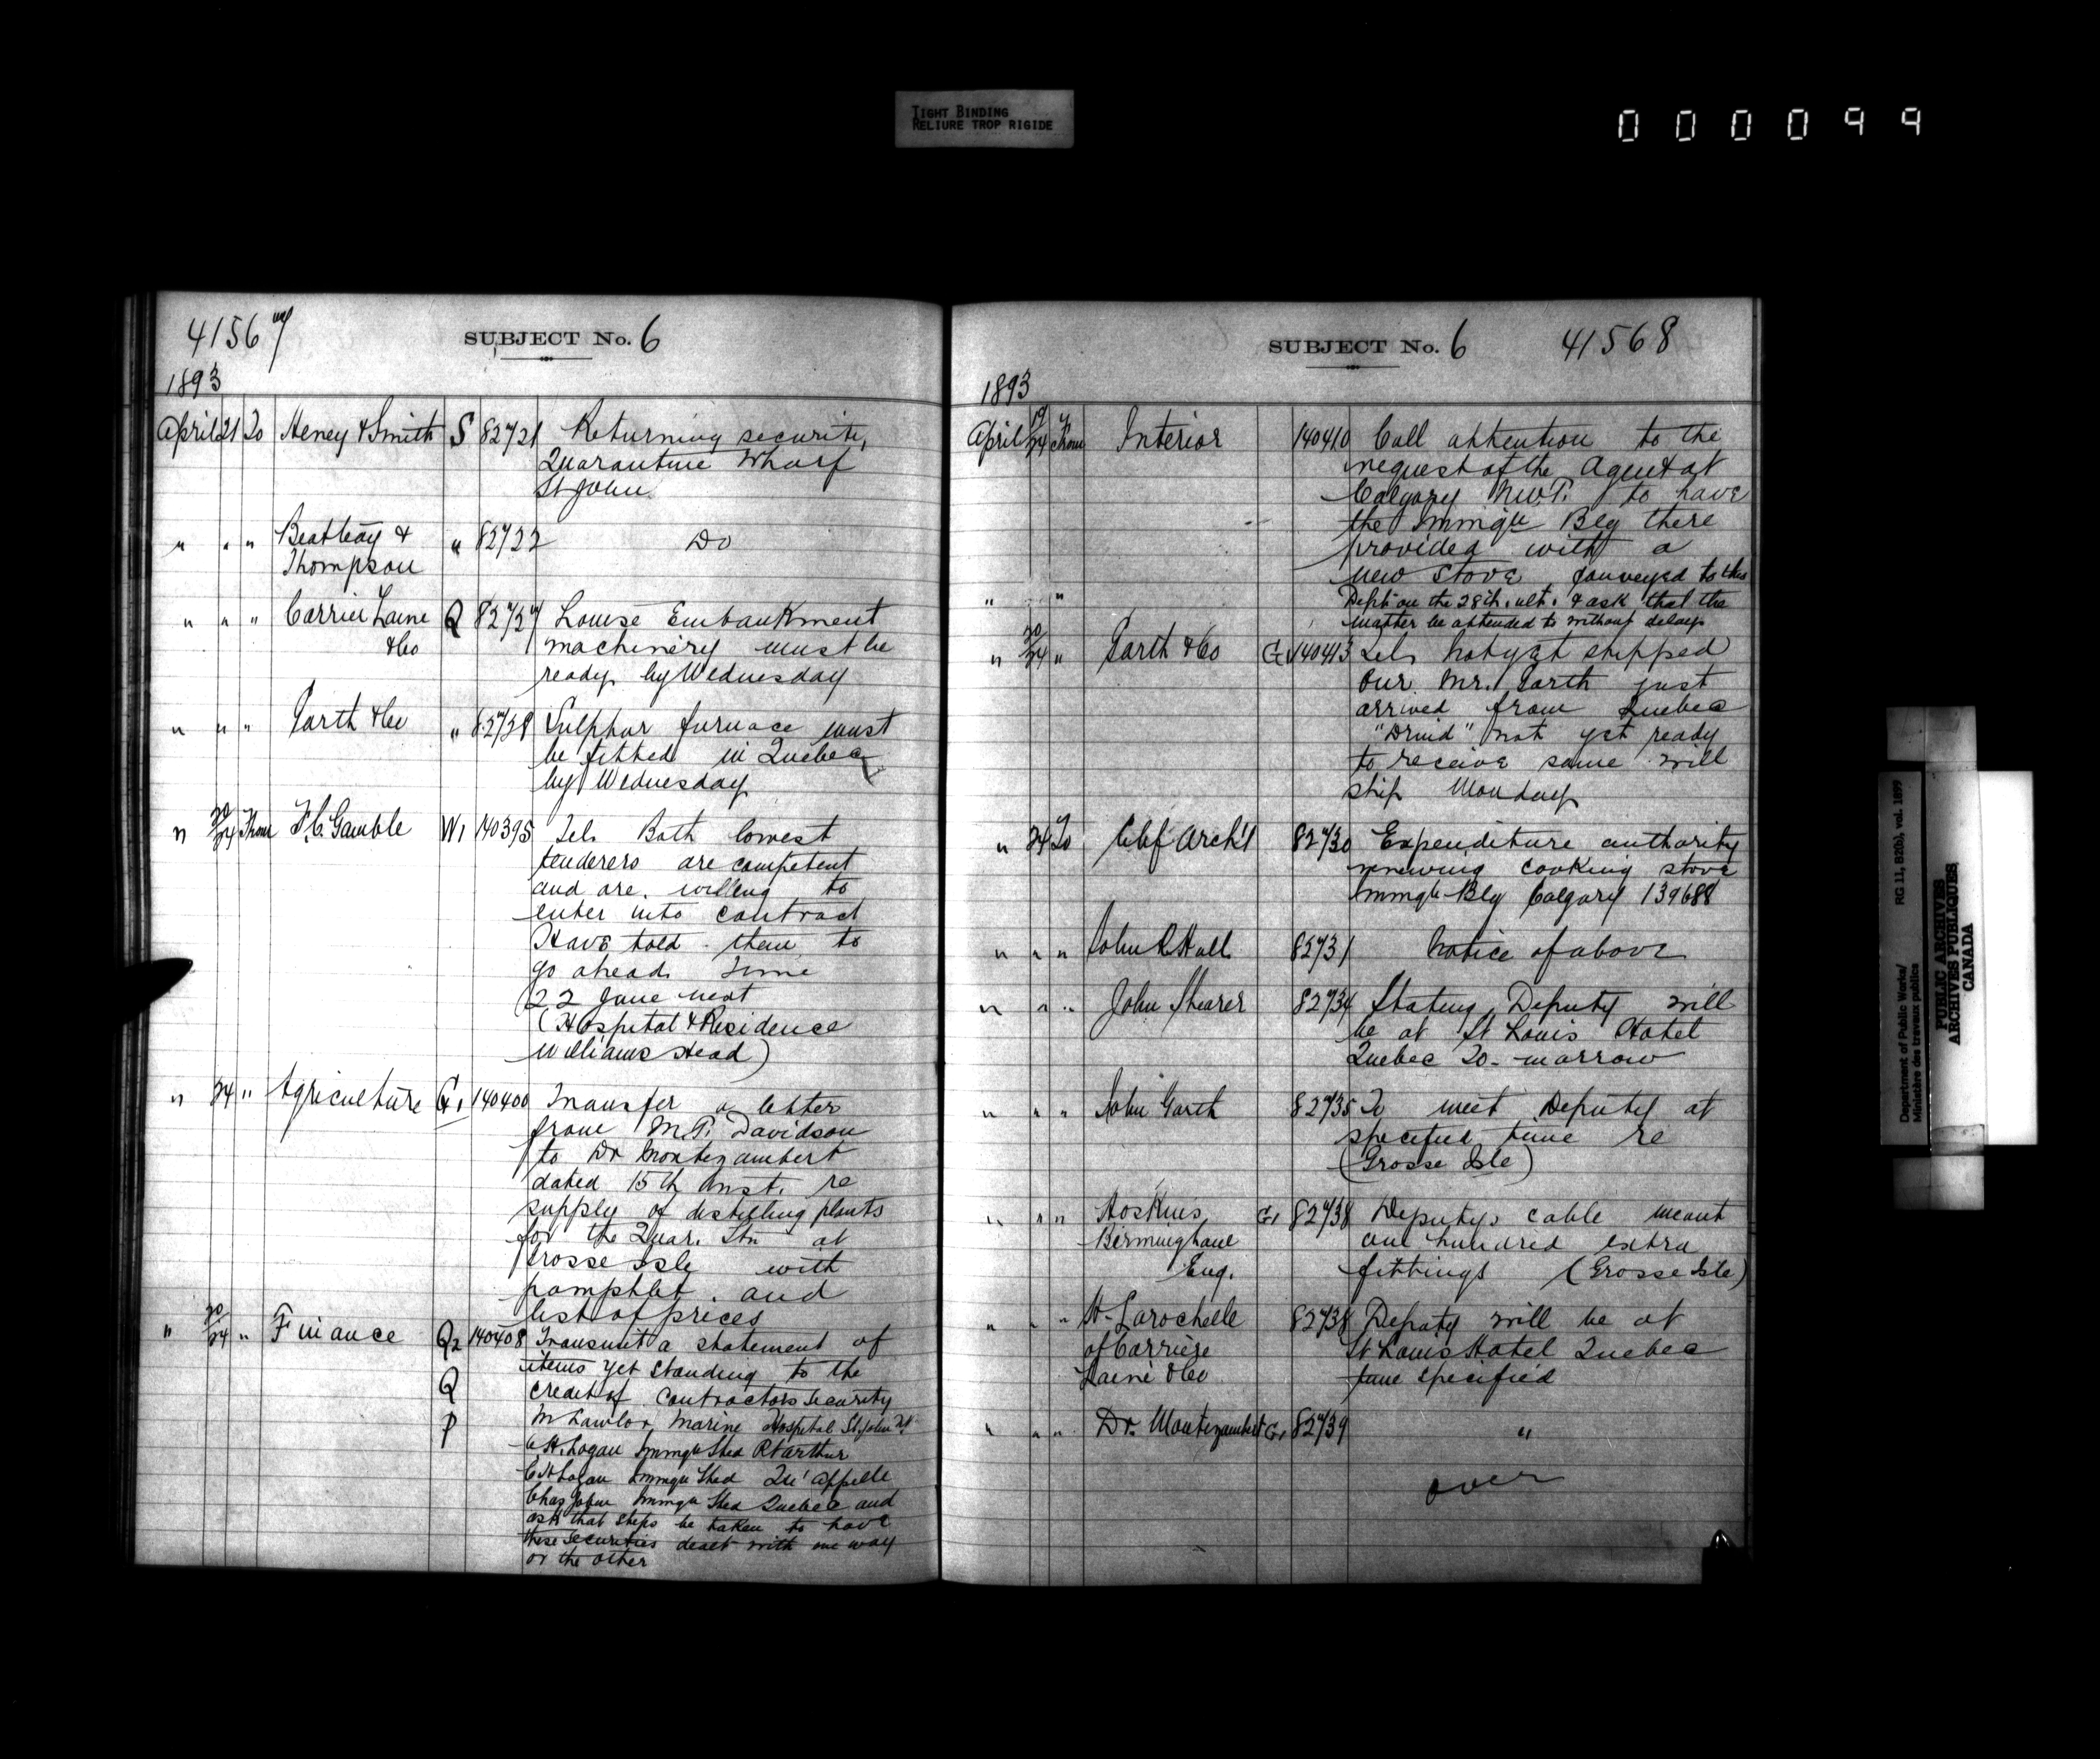 TIGHT BINDING
RELIURE TROP RIGIDE
000099
41567
SUBJECT No. 6
1893
April 21 To Heney & Smith S 82721 Returning security,
Quarantine Wharf
St John
" " " Beatteay & Thompson " 82722 Do
" " " Carrier Laine &Co Q 82727 Louise Embankment
machinery must be
ready by Wednesday
" " " Garth &Co " 82728 Sulphur furnace must
be fitted in Quebec
by Wednesday
" 20/24 From F.C. Gamble W1 140395 Tel. Both lowest
tenderers are competent
and are willing to
enter into contract
Have told them to
go ahead time
22 June next
(Hospital & Residence
Williams Head)
" 24 " Agriculture G1 140400 Transfer a letter
from M.P. Davidson
to Dr Montezambert
dated 15th Inst. re
supply of distilling plants
for the Quar. Stn at
Grosse Isle with
pamphlet and
list of prices
" 20/24 " Finance Q2 140408 Transmit a statement of
items yet standing to the
Q credit of contractors security
P M Lawlor Marine Hospital St John NB
C H. Logan Immgn Shed Pt Arthur
C H Logan Immgn Shed Qu'appelle
Chas John Immgn Shed Quebec and
ask that steps be taken to have
these securities dealt with one way
or the other
SUBJECT No. 6 41568
1893
April 19/24 From Interior 140410 Call attention to the
request of the Agent at
Calgary N.W.T. to have
the Immgn Blg there
provided with a
new stove conveyed to this
" " Dept on the 28th. ult. & ask that the
matter be attended to without delay
" 20/24 " Garth &Co G1 140413 Tel. Not yet shipped
Our Mr. Garth just
arrived from Quebec
"Druid" not yet ready
to receive same will
ship Monday
" 24 To Chf Arch't 82730 Expenditure authority
renewing cooking stove
Immgn Blg Calgary 139688
" " " John R Hall 82731 Notice of above
" " " John Shearer 82734 Stating Deputy will
be at St Louis Hotel
Quebec To-morrow
" " " John Garth 82735 To meet Deputy at
specified time re
(Grosse Isle)
" " " Hoskins G1 82738 Deputy's cable meant
Birmingham one hundred extra
Eng. fittings (Grosse Isle)
" " " H. Larochelle 82738 Deputy will be at
of Carrière St Louis Hotel Quebec
Lainé &Co time specified
" " " Dr. Montezambert G1 82739 "
over
Department of Public Works/ RG 11, B2(b), vol. 1899
Ministère des travaux publics
PUBLIC ARCHIVES
ARCHIVES PUBLIQUES
CANADA